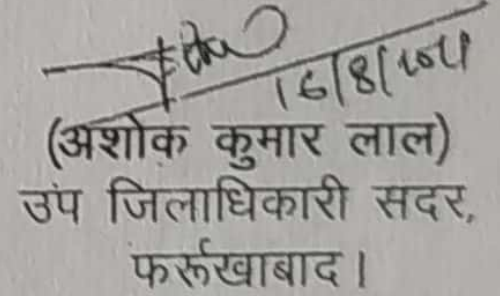 16/8/2011
(अशोक कुमार लाल)
उप जिलाधिकारी सदर,
फर्रूखाबाद।